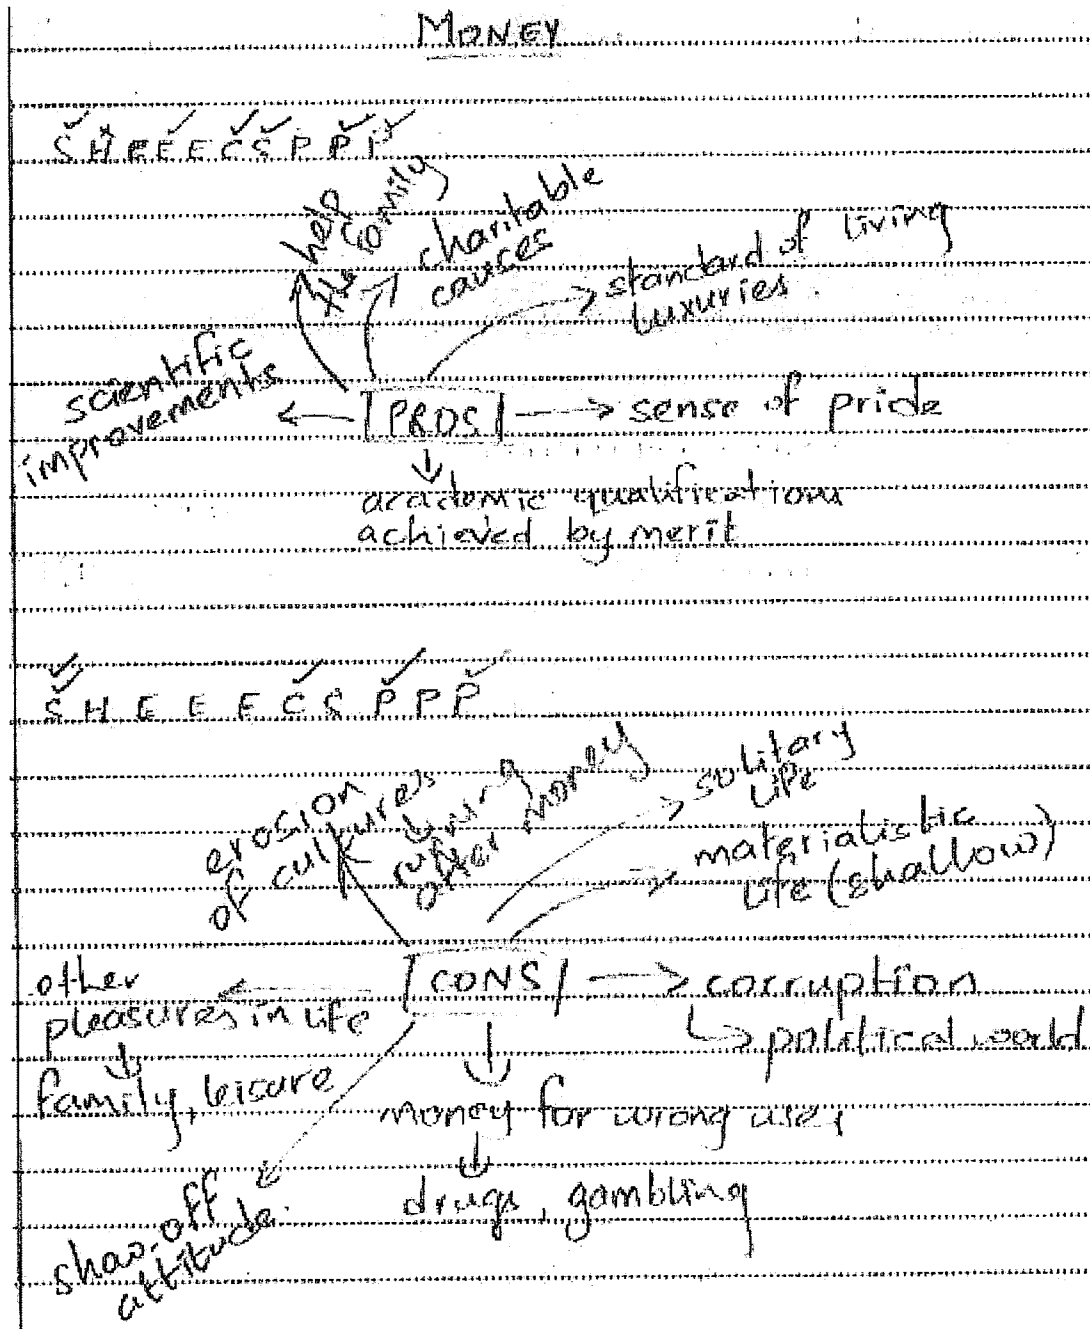 MONEY
S H E E E C S P P P
help
the family
charitable
causes
standard of living
luxuries.
scientific
improvements
PROS
sense of pride
academic qualifications
achieved by merit
S H E E E C S P P P
erosion
of cultures
running
after money
solitary
life
materialistic
life (shallow)
other
pleasures in life
family, leisure
CONS
corruption
political world
money for wrong use,
drugs, gambling
show-off
attitude.